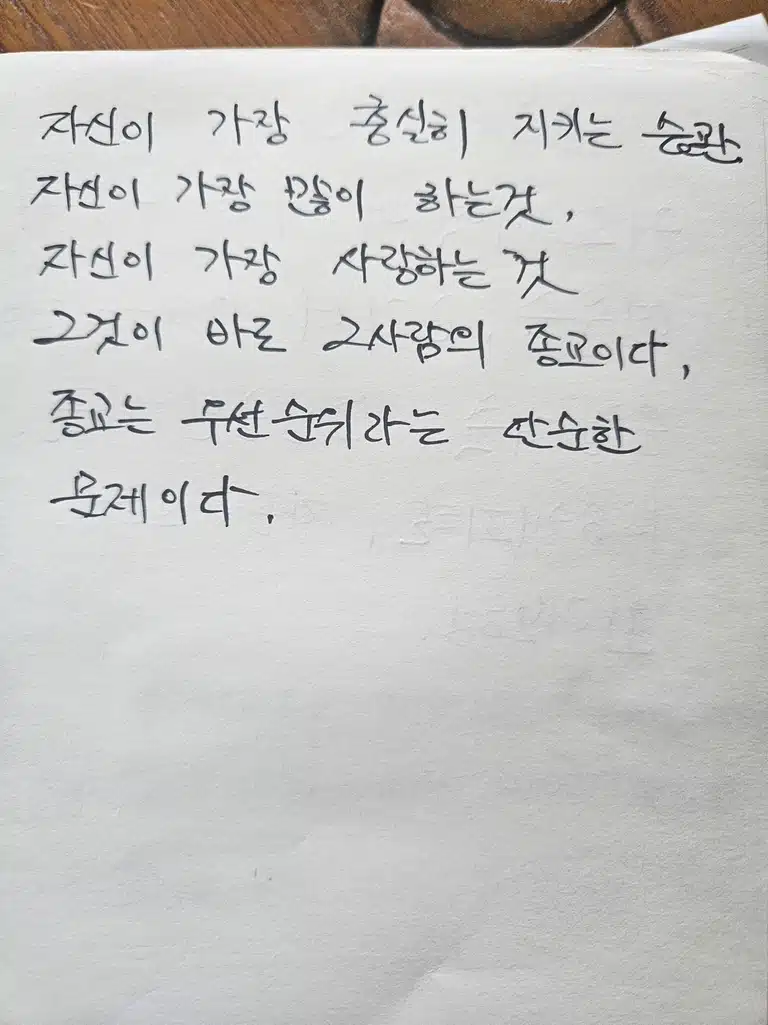 자신이 가장 충실히 지키는 습관
자신이 가장 많이 하는것,
자신이 가장 사랑하는 것
그것이 바로 그사람의 종교이다,
종교는 우선순위라는 단순한
문제이다.